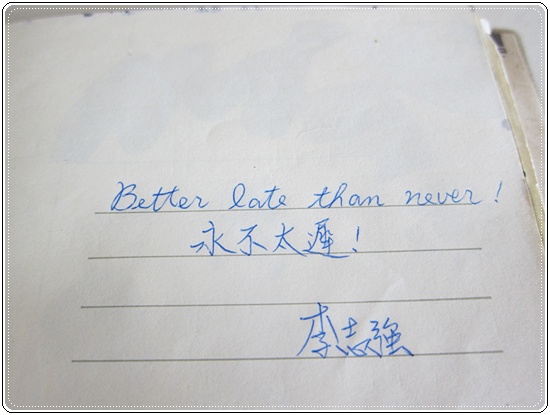 Better late than never!
永不太遲!
李志强